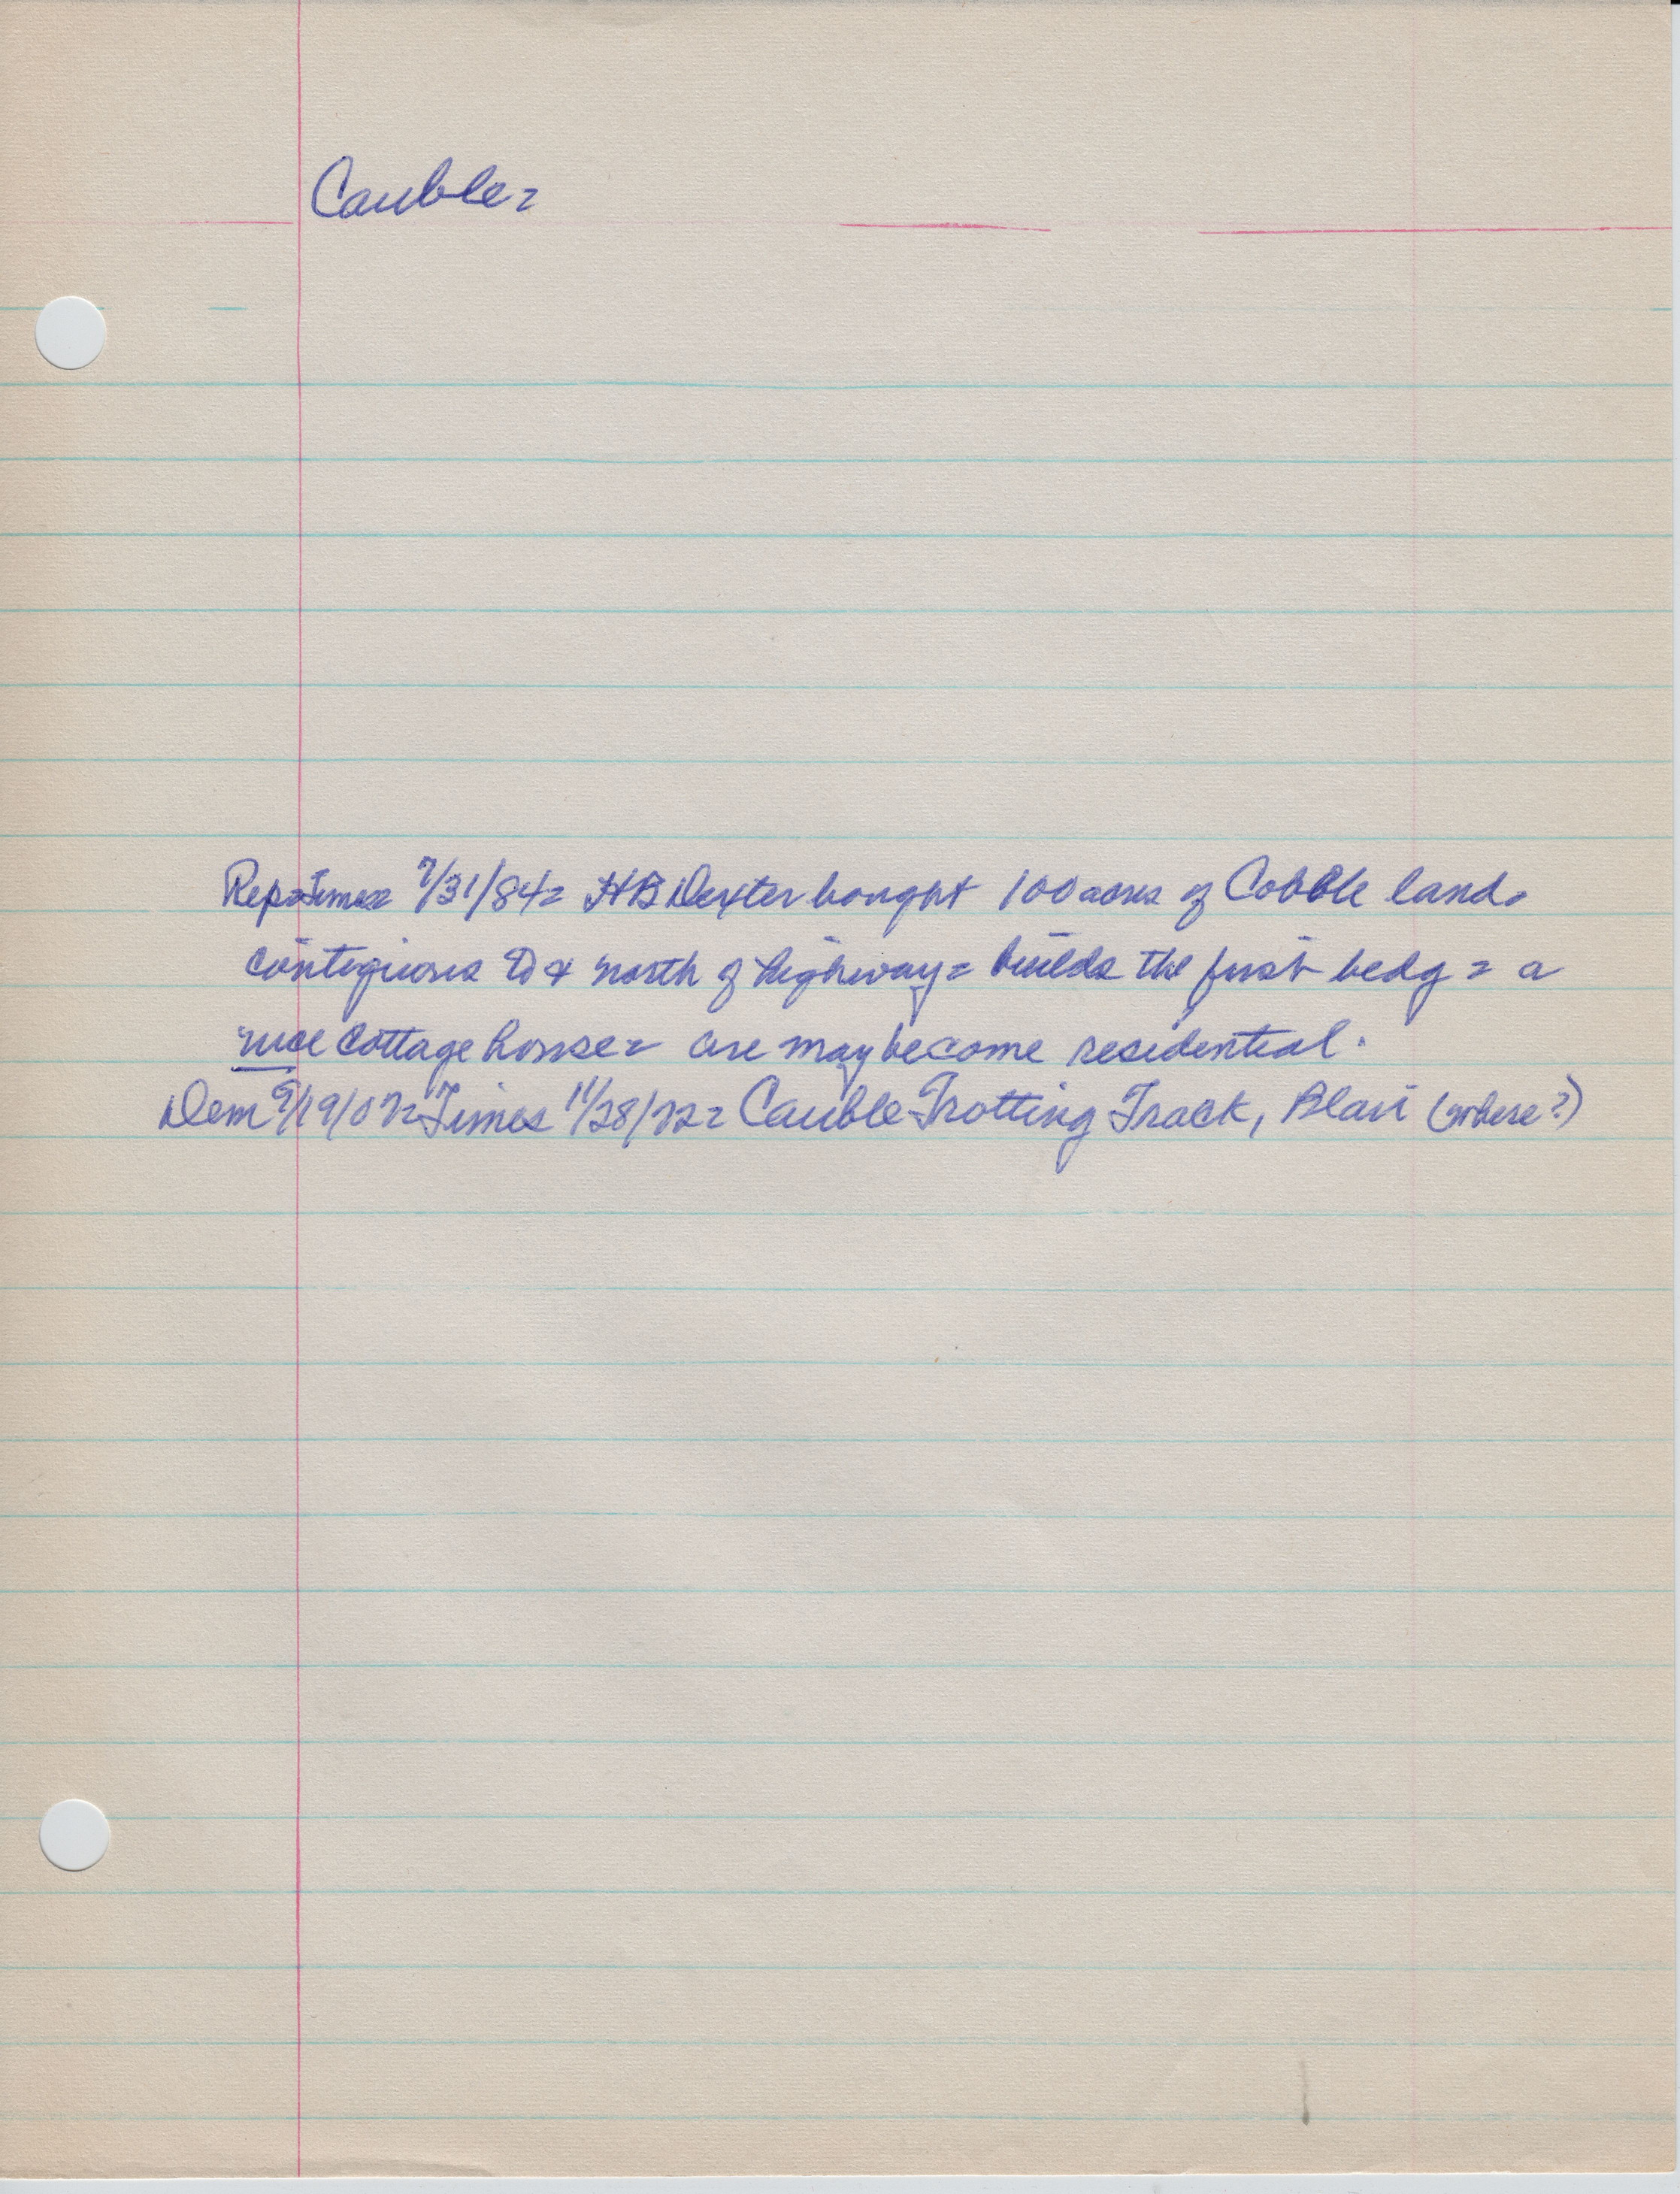 Cauble=
Rep=Times 7/31/84= HB Dexter bought 100 acres of Cobble land.
contiguous to & north of highway= builds the first bldg = a
nice cottage house= are may become residential.
Dem 9/19/07= Times 11/28/72= Cauble Trotting Track, Blair (where?)